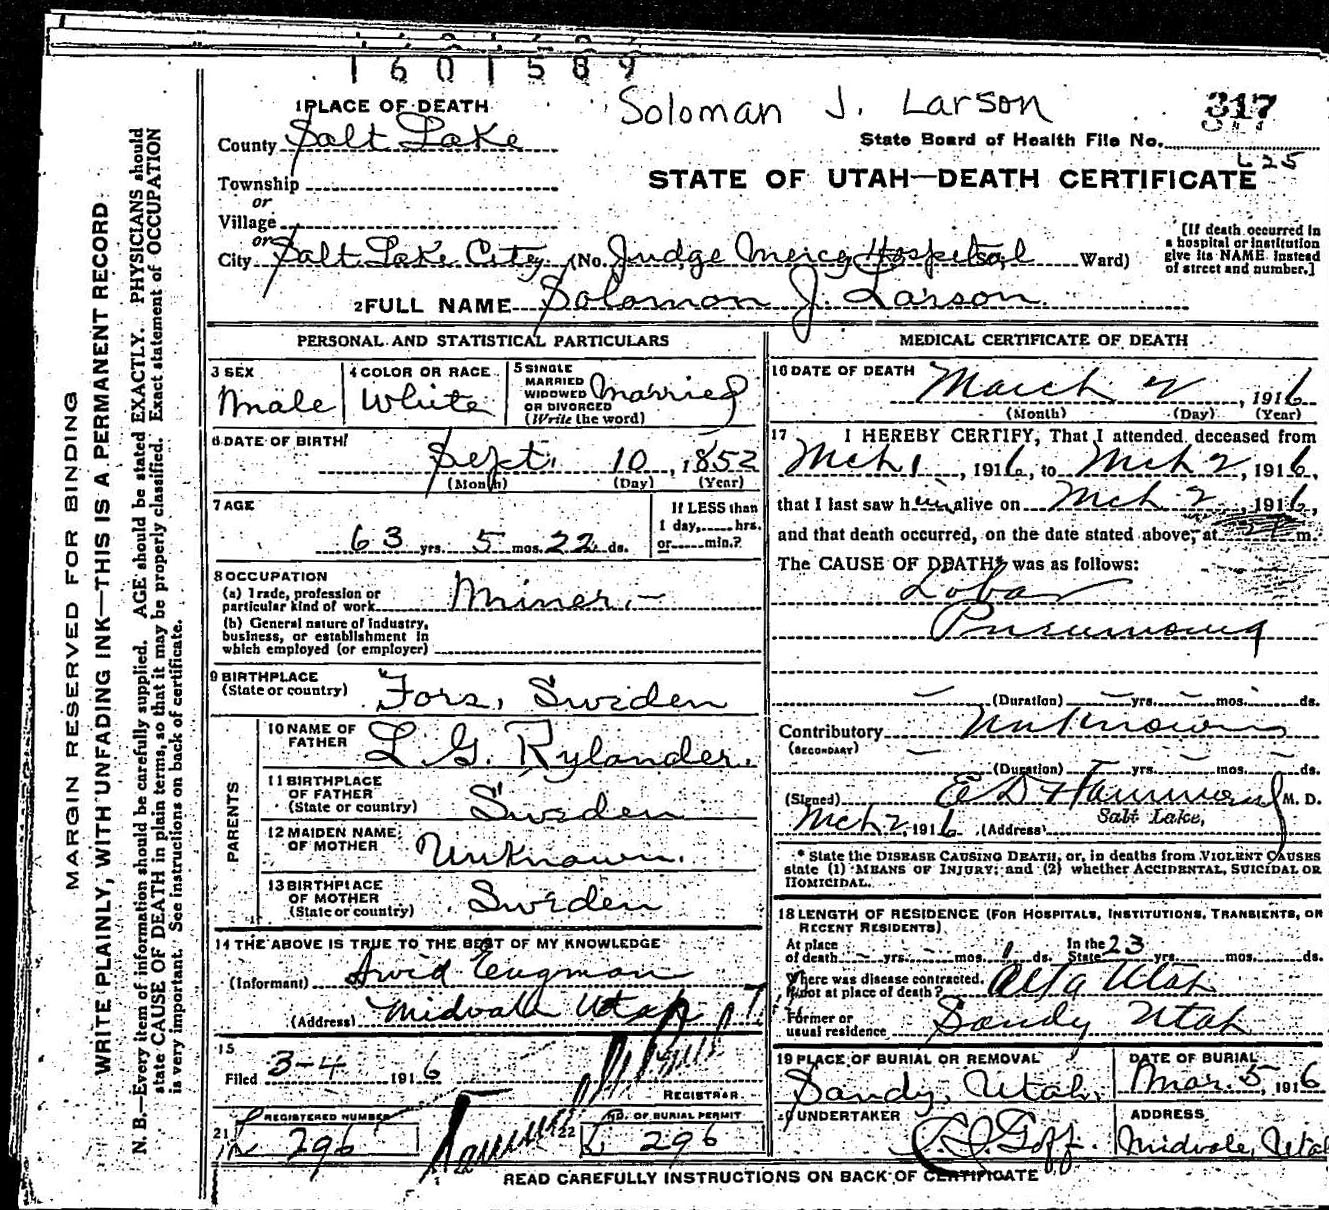 1601589
Soloman J. Larson
317
1 PLACE OF DEATH
County Salt Lake
State Board of Health File No.
L25
Township
or
Village
or
City Salt Lake City (No. Judge Mercy Hospital Ward)
STATE OF UTAH—DEATH CERTIFICATE
[If death occurred in
a hospital or institution
give its NAME instead
of street and number.]
2 FULL NAME Soloman J. Larson
PERSONAL AND STATISTICAL PARTICULARS
3 SEX Male
4 COLOR OR RACE White
5 SINGLE
MARRIED
WIDOWED
OR DIVORCED
(Write the word)
Married
6 DATE OF BIRTH
Sept. 10, 1852
(Month) (Day) (Year)
7 AGE
63 yrs. 5 mos. 22 ds.
If LESS than
1 day, hrs.
or min.?
8 OCCUPATION
(a) Trade, profession or
particular kind of work Miner.—
(b) General nature of industry,
business, or establishment in
which employed (or employer)
9 BIRTHPLACE
(State or country) Fors, Sweden
PARENTS
10 NAME OF
FATHER L. G. Rylander.
11 BIRTHPLACE
OF FATHER
(State or country) Sweden
12 MAIDEN NAME
OF MOTHER Unknown.
13 BIRTHPLACE
OF MOTHER
(State or country) Sweden
14 THE ABOVE IS TRUE TO THE BEST OF MY KNOWLEDGE
(Informant) Engman
(Address) Midvale Utah
15
Filed 3-4 1916
REGISTRAR
21 REGISTERED NUMBER
296
22 NO. OF BURIAL PERMIT
296
MEDICAL CERTIFICATE OF DEATH
16 DATE OF DEATH
March 2, 1916
(Month) (Day) (Year)
17 I HEREBY CERTIFY, That I attended deceased from
Mch 1, 1916, to Mch 2, 1916,
that I last saw him alive on Mch 2, 1916,
and that death occurred, on the date stated above, at m.
The CAUSE OF DEATH* was as follows:
Lobar
Pneumonia
(Duration) yrs. mos. ds.
Contributory Unknown
(SECONDARY)
(Duration) yrs. mos. ds.
(Signed) E D Hammond M. D.
Mch 2, 1916 (Address) Salt Lake,
* State the DISEASE CAUSING DEATH, or, in deaths from VIOLENT CAUSES
state (1) MEANS OF INJURY; and (2) whether ACCIDENTAL, SUICIDAL OR
HOMICIDAL.
18 LENGTH OF RESIDENCE (FOR HOSPITALS, INSTITUTIONS, TRANSIENTS, OR
RECENT RESIDENTS)
At place
of death yrs. mos. 1 ds.
In the
State 23 yrs. mos. ds.
Where was disease contracted,
If not at place of death? Alta Utah
Former or
usual residence Sandy Utah
19 PLACE OF BURIAL OR REMOVAL
Sandy, Utah.
DATE OF BURIAL
Mar. 5, 1916
20 UNDERTAKER
Goff.
ADDRESS
Midvale, Utah
READ CAREFULLY INSTRUCTIONS ON BACK OF CERTIFICATE
MARGIN RESERVED FOR BINDING
WRITE PLAINLY, WITH UNFADING INK—THIS IS A PERMANENT RECORD
N. B.—Every item of information should be carefully supplied. AGE should be stated EXACTLY. PHYSICIANS should
state CAUSE OF DEATH in plain terms, so that it may be properly classified. Exact statement of OCCUPATION
is very important. See instructions on back of certificate.